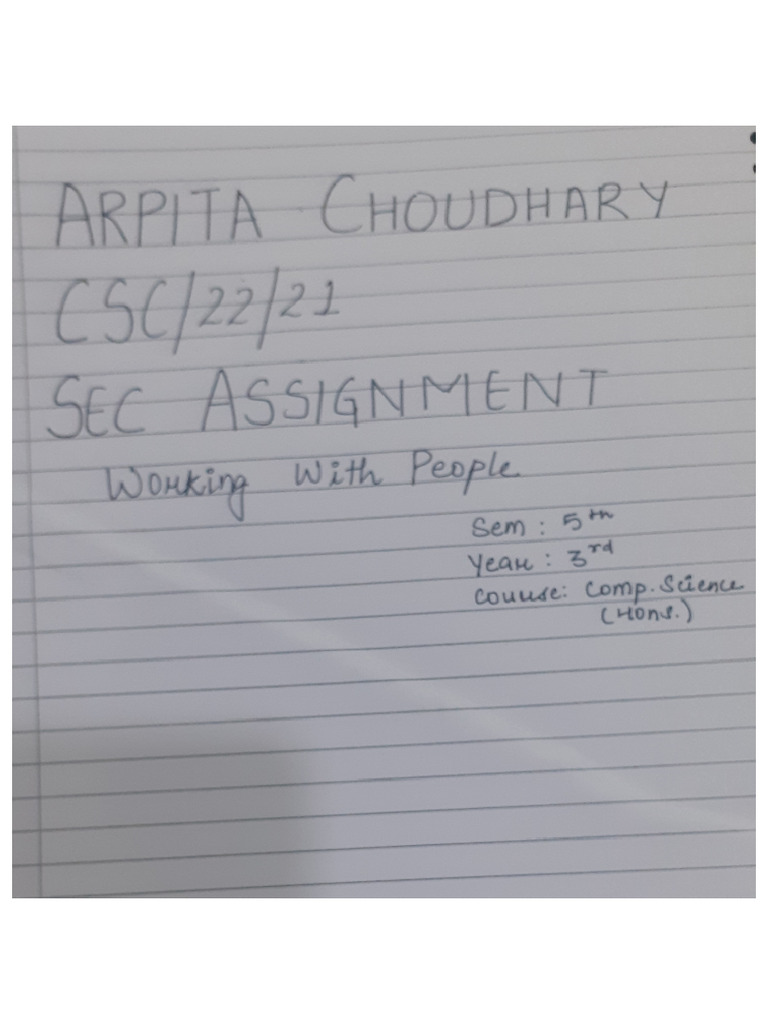 ARPITA CHOUDHARY
CSC/22/21
SEC ASSIGNMENT
Working With People
Sem : 5th
Year : 3rd
Course: Comp. Science
(Hons.)